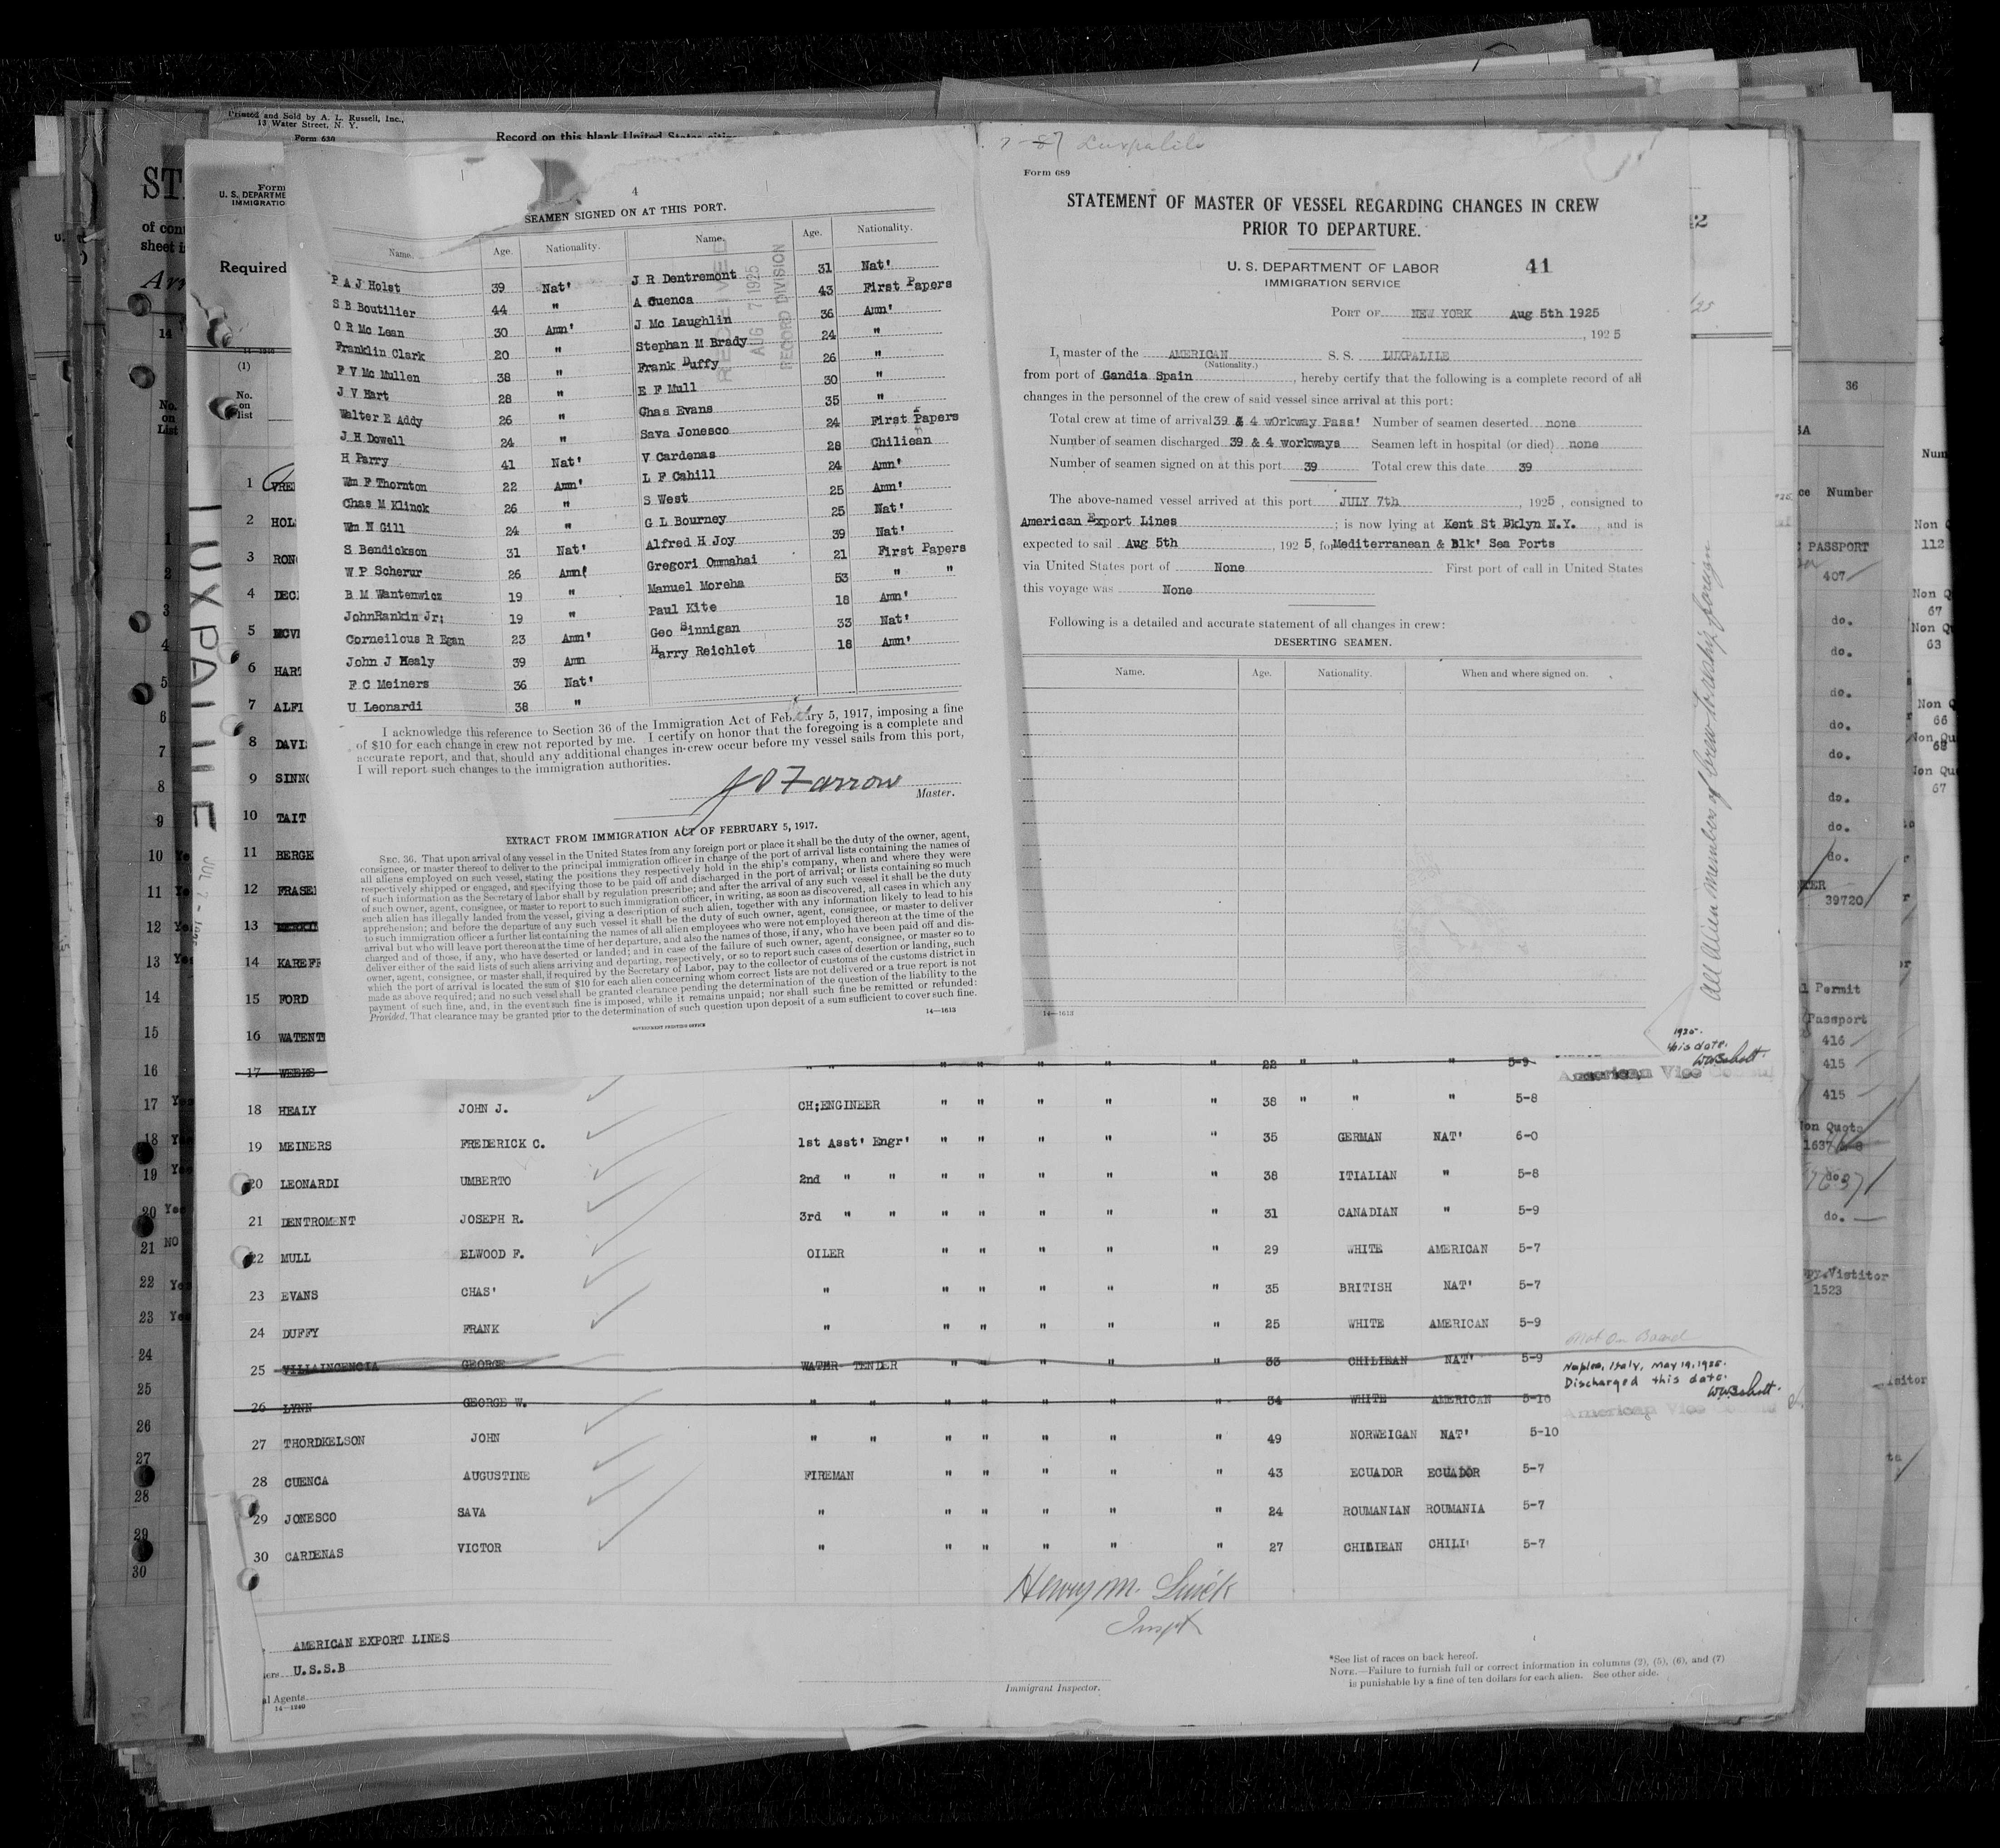 Printed and Sold by A. L. Russell, Inc.,
13 Water Street, N. Y.
Form 630
Record on this blank United States
4
SEAMEN SIGNED ON AT THIS PORT.
Name. Age. Nationality. Name. Age. Nationality.
P A J Holst 39 Nat' J R Dentremont 31 Nat'
S B Boutilier 44 " A Cuenca 43 First Papers
O R Mc Lean 30 Amn' J Mc Laughlin 36 Amn'
Franklin Clark 20 " Stephan M Brady 24 "
F V Mc Mullen 38 " Frank Duffy 26 "
J V Hart 28 " E F Mull 30 "
Walter E Addy 26 " Chas Evans 35 "
J H Dowell 24 " Sava Jonesco 24 First Papers
H Parry 41 Nat' V Cardenas 28 Chiliean
Wm F Thornton 22 Amn' L F Cahill 24 Amn'
Chas M Klinck 26 " S West 25 Amn'
Wm N Gill 24 " G L Bourney 25 Nat'
S Bendickson 31 Nat' Alfred H Joy 39 Nat'
W P Scherur 26 Amn' Gregori Ommahai 21 First Papers
B M Wantenwicz 19 " Manuel Moreha 53 " "
JohnRankin Jr; 19 " Paul Kite 18 Amn'
Corneilous R Egan 23 Amn' Geo Sinnigan 33 Nat'
John J Healy 39 Amn Harry Reichlet 18 Amn'
F C Meiners 36 Nat'
U Leonardi 38 "
RECEIVED
AUG 7 1925
RECORD DIVISION
I acknowledge this reference to Section 36 of the Immigration Act of February 5, 1917, imposing a fine
of $10 for each change in crew not reported by me. I certify on honor that the foregoing is a complete and
accurate report, and that, should any additional changes in crew occur before my vessel sails from this port,
I will report such changes to the immigration authorities.
J O Farrow
Master.
EXTRACT FROM IMMIGRATION ACT OF FEBRUARY 5, 1917.
SEC. 36. That upon arrival of any vessel in the United States from any foreign port or place it shall be the duty of the owner, agent,
consignee, or master thereof to deliver to the principal immigration officer in charge of the port of arrival lists containing the names of
all aliens employed on such vessel, stating the positions they respectively hold in the ship's company, when and where they were
respectively shipped or engaged, and specifying those to be paid off and discharged in the port of arrival; or lists containing so much
of such information as the Secretary of Labor shall by regulation prescribe; and after the arrival of any such vessel it shall be the duty
of such owner, agent, consignee, or master to report to such immigration officer, in writing, as soon as discovered, all cases in which any
such alien has illegally landed from the vessel, giving a description of such alien, together with any information likely to lead to his
apprehension; and before the departure of any such vessel it shall be the duty of such owner, agent, consignee, or master to deliver
to such immigration officer a further list containing the names of all alien employees who were not employed thereon at the time of the
arrival but who will leave port thereon at the time of her departure, and also the names of those, if any, who have been paid off and dis-
charged and of those, if any, who have deserted or landed; and in case of the failure of such owner, agent, consignee, or master so to
deliver either of the said lists of such aliens arriving and departing, respectively, or so to report such cases of desertion or landing, such
owner, agent, consignee, or master shall, if required by the Secretary of Labor, pay to the collector of customs of the customs district in
which the port of arrival is located the sum of $10 for each alien concerning whom correct lists are not delivered or a true report is not
made as above required; and no such vessel shall be granted clearance pending the determination of the question of the liability to the
payment of such fine, and, in the event such fine is imposed, while it remains unpaid; nor shall such fine be remitted or refunded:
Provided, That clearance may be granted prior to the determination of such question upon deposit of a sum sufficient to cover such fine.
14—1613
GOVERNMENT PRINTING OFFICE
7-87 Luxpalile
Form 689
STATEMENT OF MASTER OF VESSEL REGARDING CHANGES IN CREW
PRIOR TO DEPARTURE.
U. S. DEPARTMENT OF LABOR 41
IMMIGRATION SERVICE
PORT OF NEW YORK Aug 5th 1925
, 1925
I, master of the AMERICAN S. S. LUXPALILE
(Nationality.)
from port of Gandia Spain , hereby certify that the following is a complete record of all
changes in the personnel of the crew of said vessel since arrival at this port:
Total crew at time of arrival 39 & 4 wOrkway Pass' Number of seamen deserted none
Number of seamen discharged 39 & 4 workways Seamen left in hospital (or died) none
Number of seamen signed on at this port 39 Total crew this date 39
The above-named vessel arrived at this port JULY 7th , 1925 , consigned to
American Export Lines ; is now lying at Kent St Bklyn N.Y. and is
expected to sail Aug 5th , 192 5, for Mediterranean & Blk' Sea Ports
via United States port of None First port of call in United States
this voyage was None
Following is a detailed and accurate statement of all changes in crew:
DESERTING SEAMEN.
Name. Age. Nationality. When and where signed on.
14—1613
All Alien members of Crew to reship foreign
Form
U. S. DEPARTME
IMMIGRATIO
Required
14—1240
(1)
No. on list
LUXPALILE
JUL 7 - 1925
1 VRE
2 HOL
3 RON
4 DEC
5 MCV
6 HART
7 ALFI
8 DAVI
9 SINN
10 TAIT
11 BERGE
12 FRASE
13
14 KAREF
15 FORD
16 WATENT
17 WEEKS " " " " " " " 22 " " " 5-9
1925.
this date.
W W Schott.
American Vice Consul
18 HEALY JOHN J. CH;ENGINEER " " " " " 38 " " " 5-8
19 MEINERS FREDERICK C. 1st Asst' Engr' " " " " " 35 GERMAN NAT' 6-0
20 LEONARDI UMBERTO 2nd " " " " " " " 38 ITIALIAN " 5-8
21 DENTROMENT JOSEPH R. 3rd " " " " " " " 31 CANADIAN " 5-9
22 MULL ELWOOD F. OILER " " " " " 29 WHITE AMERICAN 5-7
23 EVANS CHAS' " " " " " " 35 BRITISH NAT' 5-7
24 DUFFY FRANK " " " " " " 25 WHITE AMERICAN 5-9
25 VILLAINCENCIA GEORGE WATER TENDER " " " " " 33 CHILIEAN NAT' 5-9
Not On Board
Naples, Italy, May 19, 1925.
Discharged this date.
W W Schott.
American Vice Consul
26 LYNN GEORGE W. " " " " " " " 34 WHITE AMERICAN 5-10
27 THORDKELSON JOHN " " " " " " " 49 NORWEIGAN NAT' 5-10
28 CUENCA AUGUSTINE FIREMAN " " " " " 43 ECUADOR ECUADOR 5-7
29 JONESCO SAVA " " " " " " 24 ROUMANIAN ROUMANIA 5-7
30 CARDENAS VICTOR " " " " " " 27 CHILIEAN CHILI' 5-7
Henry M.
Inspt
AMERICAN EXPORT LINES
U.S.S.B
al Agents
14—1240
Immigrant Inspector.
*See list of races on back hereof.
NOTE.—Failure to furnish full or correct information in columns (2), (5), (6), and (7)
is punishable by a fine of ten dollars for each alien. See other side.
ST
of con
sheet i
Arr
14
No. on List
1
2
3
4
5
6
7
8
9
10 Ye
11 Ye
12 Ye
13 Yes
14
15
16
17 Yes
18 Yes
19 Yes
20 Yes
21 NO
22 Yes
23 Yes
24
25
26
27
28
29
30
36
Number
PASSPORT
407
do.
do.
do.
do.
do.
do.
do.
do.
39720
Permit
Passport
416
415
415
Non Quota
1637
do.
do.
Vistitor
1523
Num
Non Q
112
Non Q
67
Non Qu
63
Non Q
66
Non Qu
68
Non Qu
67